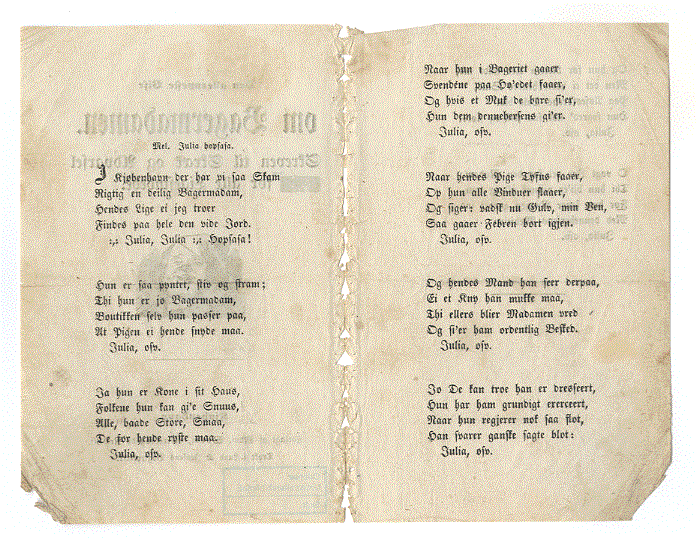 Mel. Julia hopsasa.
I Kjøbenhavn der har vi saa Skam
Rigtig en deilig Bagermadam,
Hendes Lige ei jeg troer
Findes paa hele den vide Jord.
:,: Julia, Julia :,: Hopsasa!
Hun er saa pyntet, stiv og stram;
Thi hun er jo Bagermadam,
Boutikken selv hun passer paa,
At Pigen ei hende snyde maa.
Julia, osv.
Ja hun er Kone i sit Haus,
Folkene hun kan gi'e Smuus,
Alle, baade Store, Smaa,
De for hende ryste maa.
Julia, osv.
Naar hun i Bageriet gaaer
Svendene paa Ho'edet faaer,
Og hvis et Muk de bare si'er,
Hun dem dennehersens gi'er.
Julia, osv.
Naar hendes Pige Tyfus faaer,
Op hun alle Vinduer slaaer,
Og siger: vadsk nu Gulv, min Ven,
Saa gaaer Febren bort igjen.
Julia, osv.
Og hendes Mand han seer derpaa,
Ei et Kny han mukke maa,
Thi ellers blier Madamen vred
Og si'er ham ordentlig Besked.
Julia, osv.
Jo De kan troe han er dresseert,
Hun har ham grundigt exerceert,
Naar hun regjerer nok saa flot,
Han svarer ganske sagte blot:
Julia, osv.